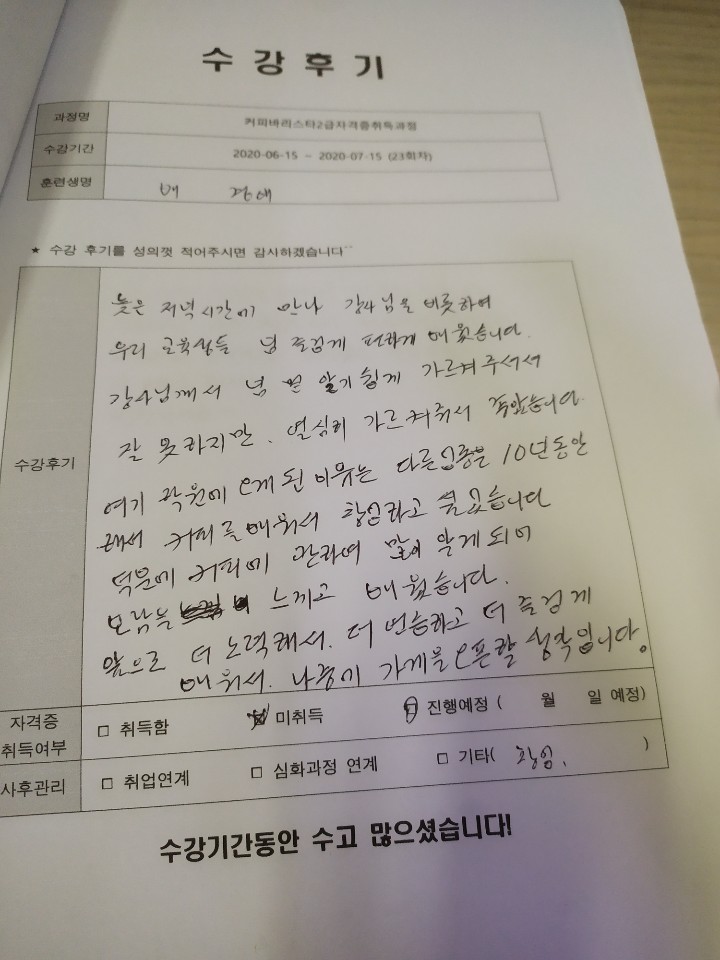 수 강 후 기
과정명 커피바리스타2급자격증취득과정
수강기간 2020-06-15 ~ 2020-07-15 (23회차)
훈련생명 배
★ 수강 후기를 성의껏 적어주시면 감시하겠습니다~~
수강후기
늦은 저녁시간에 만나 강사님을 비롯하여
우리 교육생들 넘 즐겁게 편하게 배웠습니다.
강사님께서 넘 알기쉽게 가르켜주셔서
잘 못하지만, 열심히 가르켜줘서
여기 학원에 오게된 이유는 다른업종을 10년동안
해서 커피를 배워서 창업하고 싶었습니다
덕분에 커피에 관하여 많이 알게되어
보람을 느끼고 배웠습니다.
앞으로 더 노력해서. 더 연습하고 더 즐겁게
배워서. 나중에 가게를 오픈할 생각입니다.
자격증 취득여부 □ 취득함 □ 미취득 □ 진행예정 ( 월 일 예정)
사후관리 □ 취업연계 □ 심화과정 연계 □ 기타( 창업. )
수강기간동안 수고 많으셨습니다!